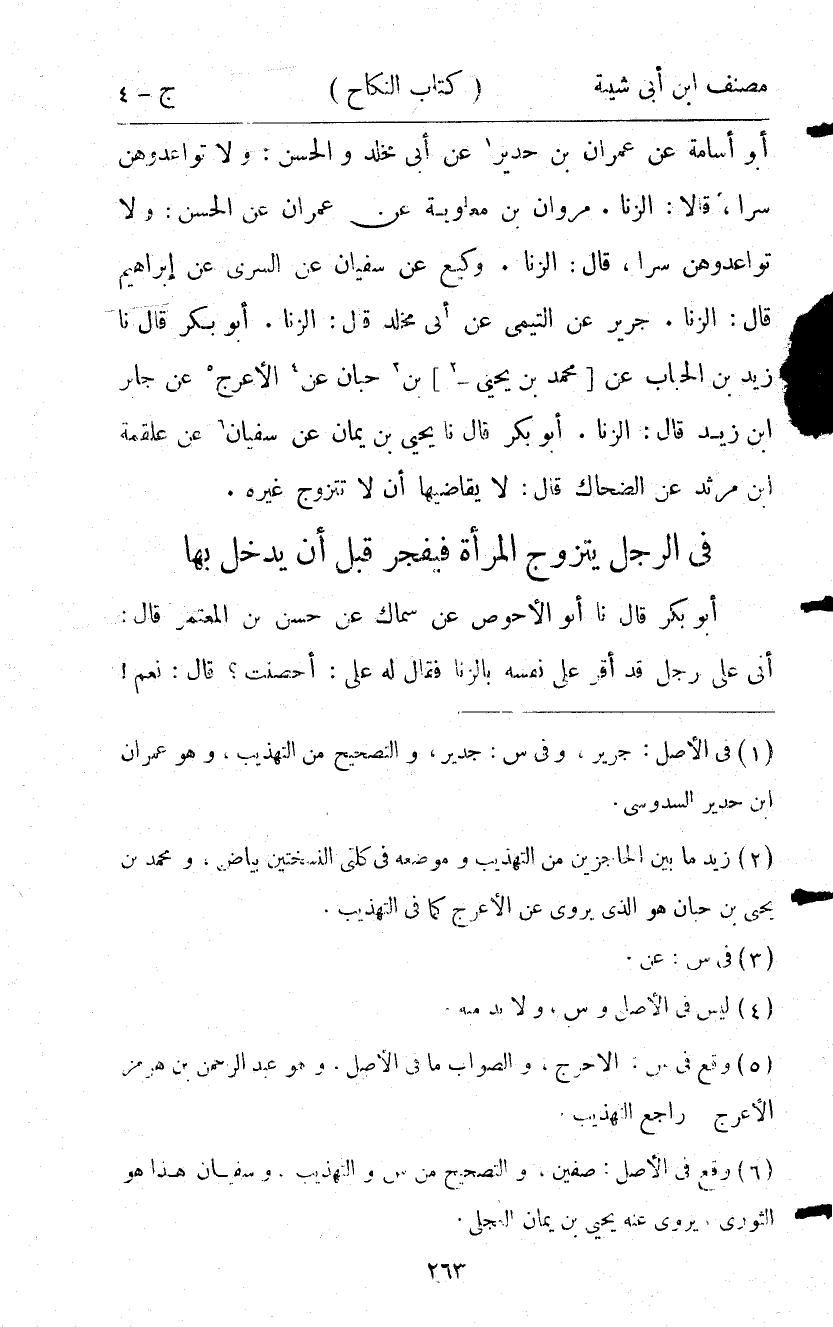 مصنف ابن أبى شيبة ( كتاب النكاح ) ج - ٤
أبو أسامة عن عمران بن حدير١ عن أبى مخلد و الحسن : و لا تواعدوهن
سرا ، قالا : الزنا . مروان بن معاوية عن عمران عن الحسن : و لا
تواعدوهن سرا ، قال : الزنا . وكيع عن سفيان عن السرى عن إبراهيم
قال : الزنا . جرير عن التيمى عن أبى مخلد قال : الزنا . أبو بكر قال نا
زيد بن الحباب عن [ محمد بن يحيى -٢ ] بن٣ حبان عن٤ الأعرج٥ عن جابر
ابن زيد قال : الزنا . أبو بكر قال نا يحيى بن يمان عن سفيان٦ عن علقمة
ابن مرثد عن الضحاك قال : لا يقاضيها أن لا تتزوج غيره .
فى الرجل يتزوج المرأة فيفجر قبل أن يدخل بها
أبو بكر قال نا أبو الأحوص عن سماك عن حسن بن المعتمر قال :
أتى على رجل قد أقر على نفسه بالزنا فقال له على : أحصنت ؟ قال : نعم !
(١) فى الأصل : جرير ، و فى س : جدير ، و التصحيح من التهذيب ، و هو عمران
ابن حدير السدوسى .
(٢) زيد ما بين الحاجزين من التهذيب و موضعه فى كلتى النسختين بياض ، و محمد بن
يحيى بن حبان هو الذى يروى عن الأعرج كما فى التهذيب .
(٣) فى س : عن .
(٤) ليس فى الأصل و س ، و لا بد منه .
(٥) وقع فى س : الاحرج ، و الصواب ما فى الأصل . و هو عبد الرحمن بن هرمز
الأعرج راجع التهذيب .
(٦) وقع فى الأصل : صفين ، و التصحيح من س و التهذيب . و سفيان هذا هو
الثورى ، يروى عنه يحيى بن يمان العجلى .
٢٦٣